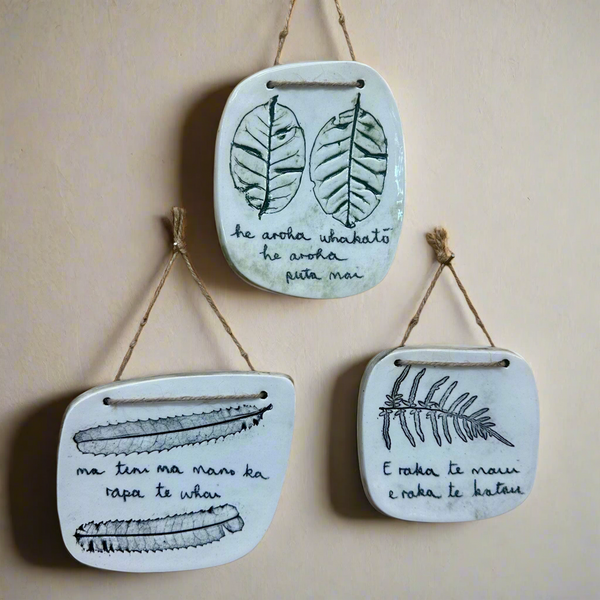 he aroha whakatō
he aroha
puta mai
ma tini ma mano ka
rapa te whai
E raka te maui
e raka te katau